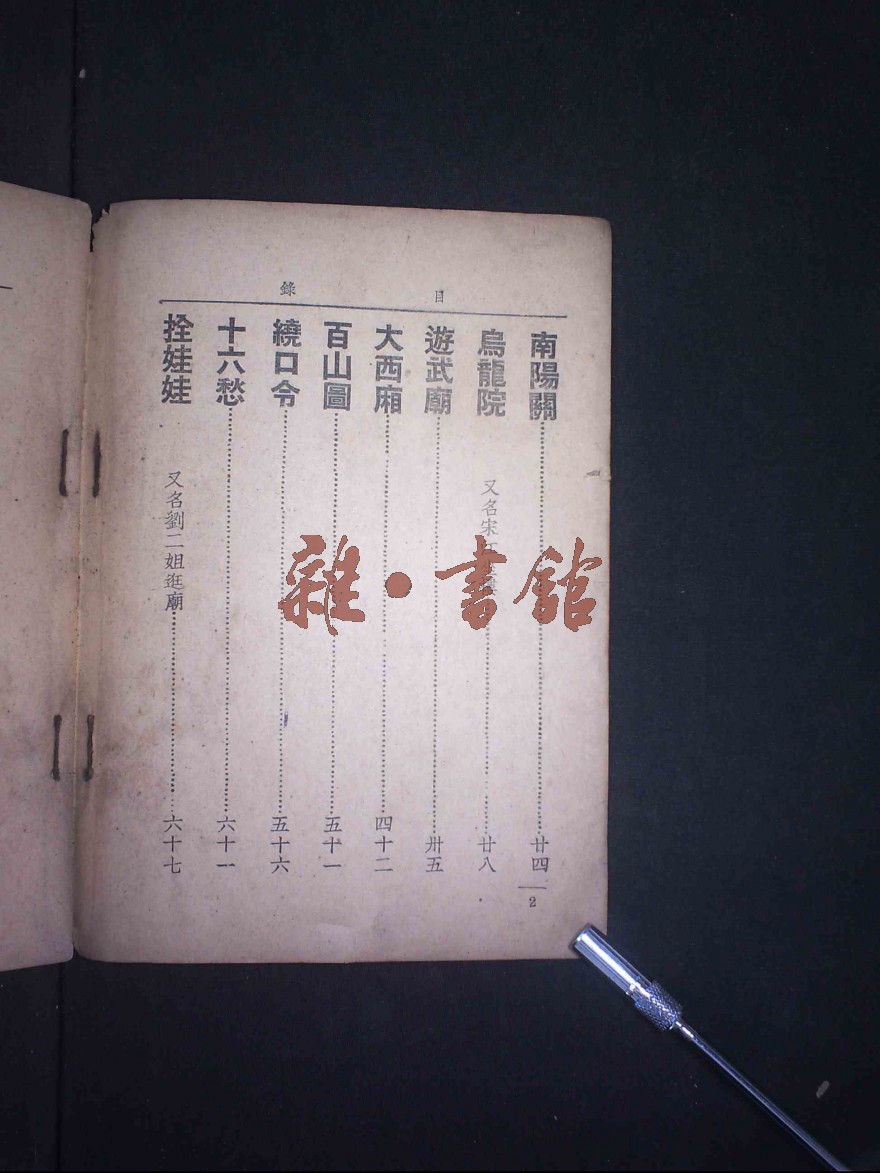 目錄
南陽關 廿四
烏龍院 又名宋 廿八
遊武廟 卅五
大西廂 四十二
百山圖 五十一
繞口令 五十六
十六愁 六十一
拴娃娃 又名劉二姐逛廟 六十七
2
雜·書館